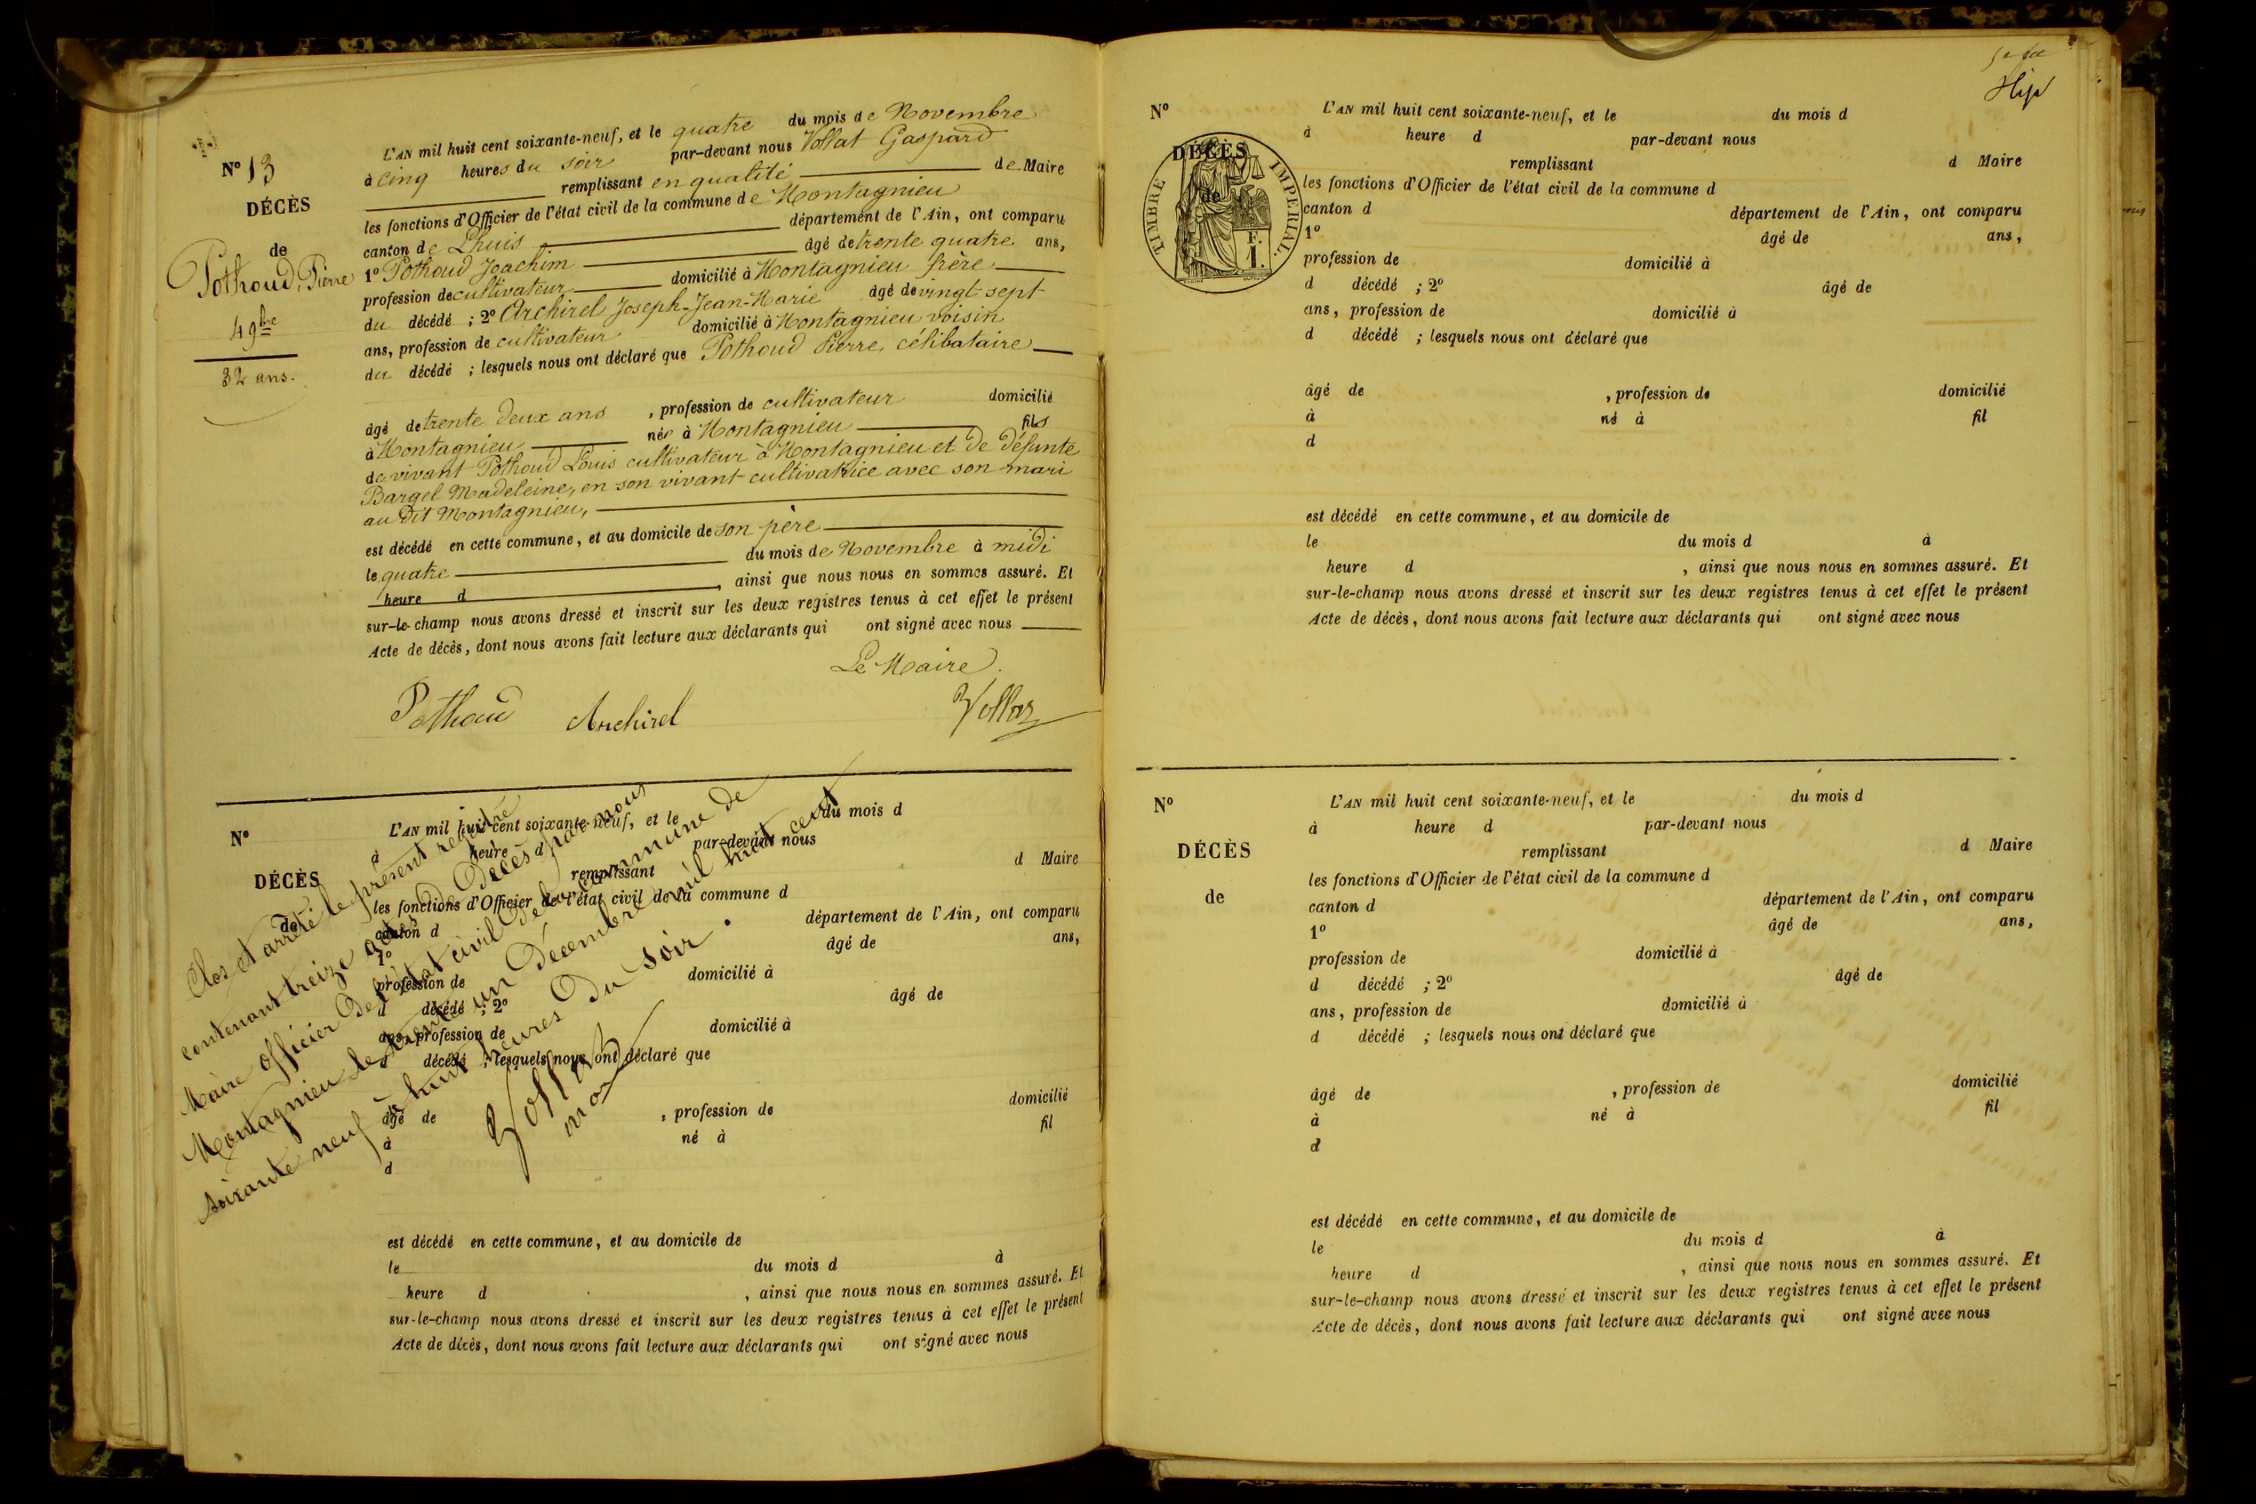 N° 13
DÉCÈS
de
Pothoud, Pierre
4 9bre
32 ans.
L'AN mil huit cent soixante-neuf, et le quatre du mois de Novembre
à cinq heures du soir par-devant nous Vollat Gaspard
remplissant en qualité de Maire
les fonctions d'Officier de l'état civil de la commune de Montagnieu
canton de Lhuis département de l'Ain, ont comparu
1° Pothoud Joachim âgé de trente quatre ans,
profession de cultivateur domicilié à Montagnieu frère
du décédé ; 2° Archirel Joseph-Jean-Marie âgé de vingt sept
ans, profession de cultivateur domicilié à Montagnieu voisin
du décédé ; lesquels nous ont déclaré que Pothoud Pierre, célibataire
âgé de trente deux ans , profession de cultivateur domicilié
à Montagnieu né à Montagnieu fils
de vivant Pothoud Louis cultivateur à Montagnieu et de défunte
Bargel Madeleine, en son vivant cultivatrice avec son mari
au dit Montagnieu,
est décédé en cette commune, et au domicile de son père
le quatre du mois de Novembre à midi
heure d , ainsi que nous nous en sommes assuré. Et
sur-le-champ nous avons dressé et inscrit sur les deux registres tenus à cet effet le présent
Acte de décès, dont nous avons fait lecture aux déclarants qui ont signé avec nous
Le Maire.
Pothoud Archirel Vollat
N°
DÉCÈS
de
L'AN mil huit cent soixante-neuf, et le du mois d
à heure d par-devant nous
remplissant d Maire
les fonctions d'Officier de l'état civil de la commune d
canton d département de l'Ain, ont comparu
1° âgé de ans,
profession de domicilié à
d décédé ; 2° âgé de
ans, profession de domicilié à
d décédé ; lesquels nous ont déclaré que
âgé de , profession de domicilié
à né à fil
d
est décédé en cette commune, et au domicile de
le du mois d à
heure d , ainsi que nous nous en sommes assuré. Et
sur-le-champ nous avons dressé et inscrit sur les deux registres tenus à cet effet le présent
Acte de décès, dont nous avons fait lecture aux déclarants qui ont signé avec nous
Clos et arrêté le présent registre
contenant treize actes de Décès par nous
Maire officier de l'état civil de la commune de
Montagnieu le trente un Décembre mil huit cent
soixante neuf à huit heures du soir.
Vollat
N°
DÉCÈS
de
TIMBRE IMPÉRIAL.
F.
1.
L'AN mil huit cent soixante-neuf, et le du mois d
à heure d par-devant nous
remplissant d Maire
les fonctions d'Officier de l'état civil de la commune d
canton d département de l'Ain, ont comparu
1° âgé de ans,
profession de domicilié à
d décédé ; 2° âgé de
ans, profession de domicilié à
d décédé ; lesquels nous ont déclaré que
âgé de , profession de domicilié
à né à fil
d
est décédé en cette commune, et au domicile de
le du mois d à
heure d , ainsi que nous nous en sommes assuré. Et
sur-le-champ nous avons dressé et inscrit sur les deux registres tenus à cet effet le présent
Acte de décès, dont nous avons fait lecture aux déclarants qui ont signé avec nous
N°
DÉCÈS
de
L'AN mil huit cent soixante-neuf, et le du mois d
à heure d par-devant nous
remplissant d Maire
les fonctions d'Officier de l'état civil de la commune d
canton d département de l'Ain, ont comparu
1° âgé de ans,
profession de domicilié à
d décédé ; 2° âgé de
ans, profession de domicilié à
d décédé ; lesquels nous ont déclaré que
âgé de , profession de domicilié
à né à fil
d
est décédé en cette commune, et au domicile de
le du mois d à
heure d , ainsi que nous nous en sommes assuré. Et
sur-le-champ nous avons dressé et inscrit sur les deux registres tenus à cet effet le présent
Acte de décès, dont nous avons fait lecture aux déclarants qui ont signé avec nous